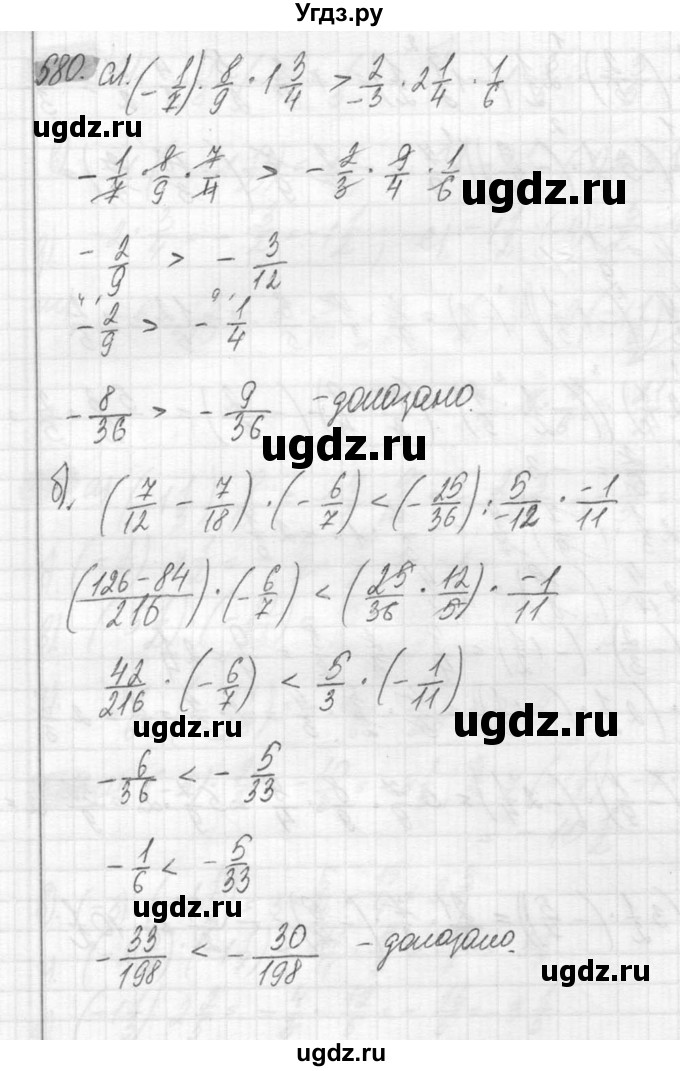 Угдз.ру
580. а). (-1/7) · 8/9 · 1 3/4 > 2/-3 · 2 1/4 · 1/6
ugdz.ru
-1/7 · 8/9 · 7/4 > -2/3 · 9/4 · 1/6
ugdz.ru
-2/9 > -3/12
4 9
-2/9 > -1/4
-8/36 > -9/36 - доказано.
ugdz.ru
б). (7/12 - 7/18) · (-6/7) < (-25/36) : 5/-12 · -1/11
((126-84)/216) · (-6/7) < (25/36 · 12/5) · -1/11
42/216 · (-6/7) < 5/3 · (-1/11)
ugdz.ru ugdz.ru
-6/36 < -5/33
-1/6 < -5/33
ugdz.ru
-33/198 < -30/198 - доказано.
ugdz.ru
ugdz.ru